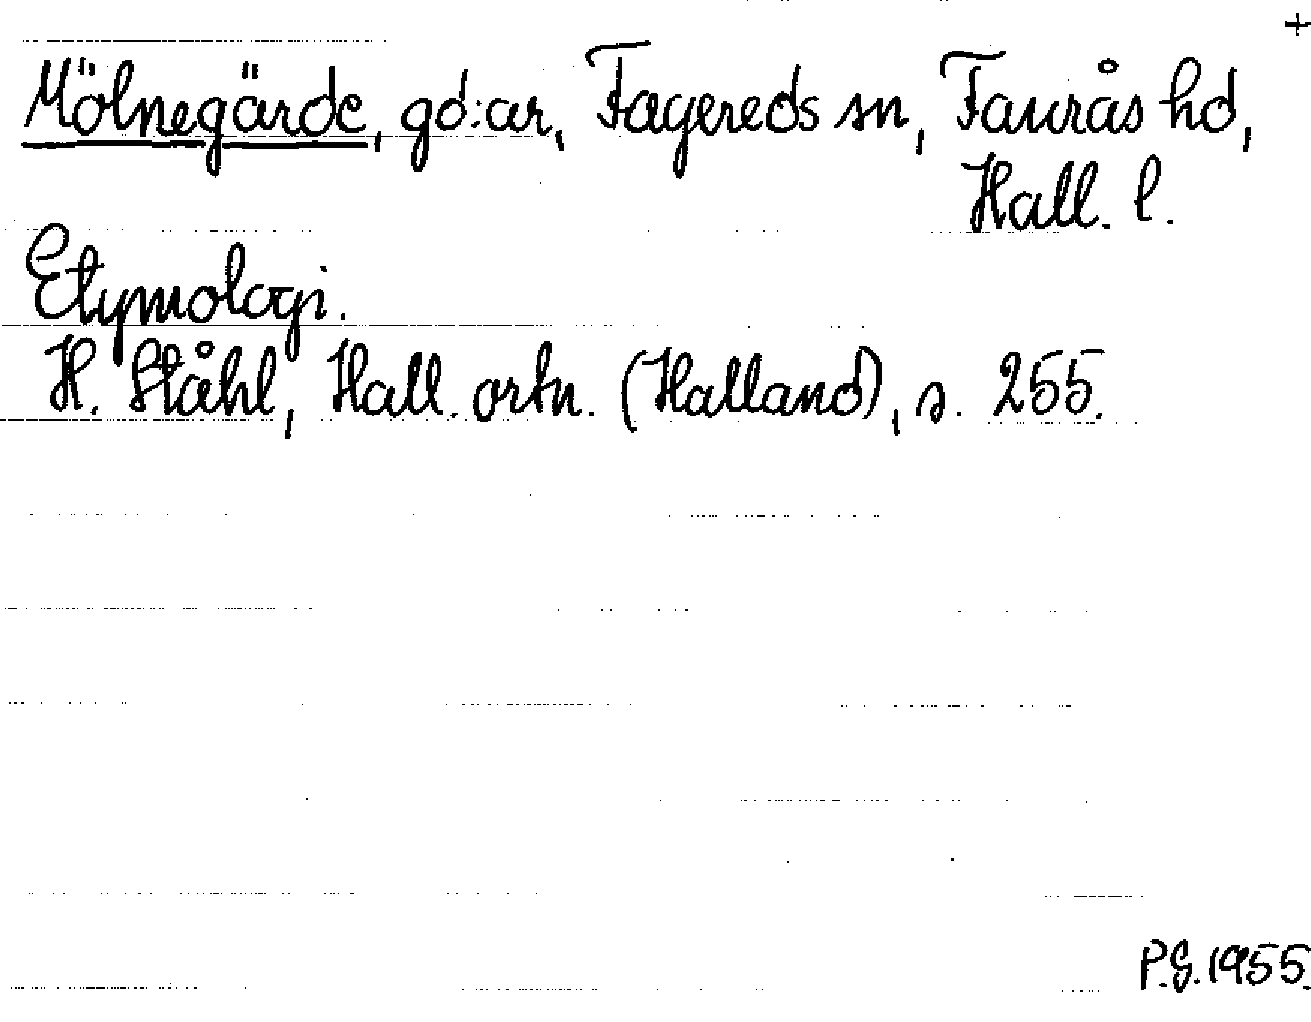 +
Mölnegärde, gd:ar, Fagereds sn, Faurås hd,
Hall. l.
Etymologi.
H. Ståhl, Hall. ortn. (Halland), s. 255.
P.G. 1955.